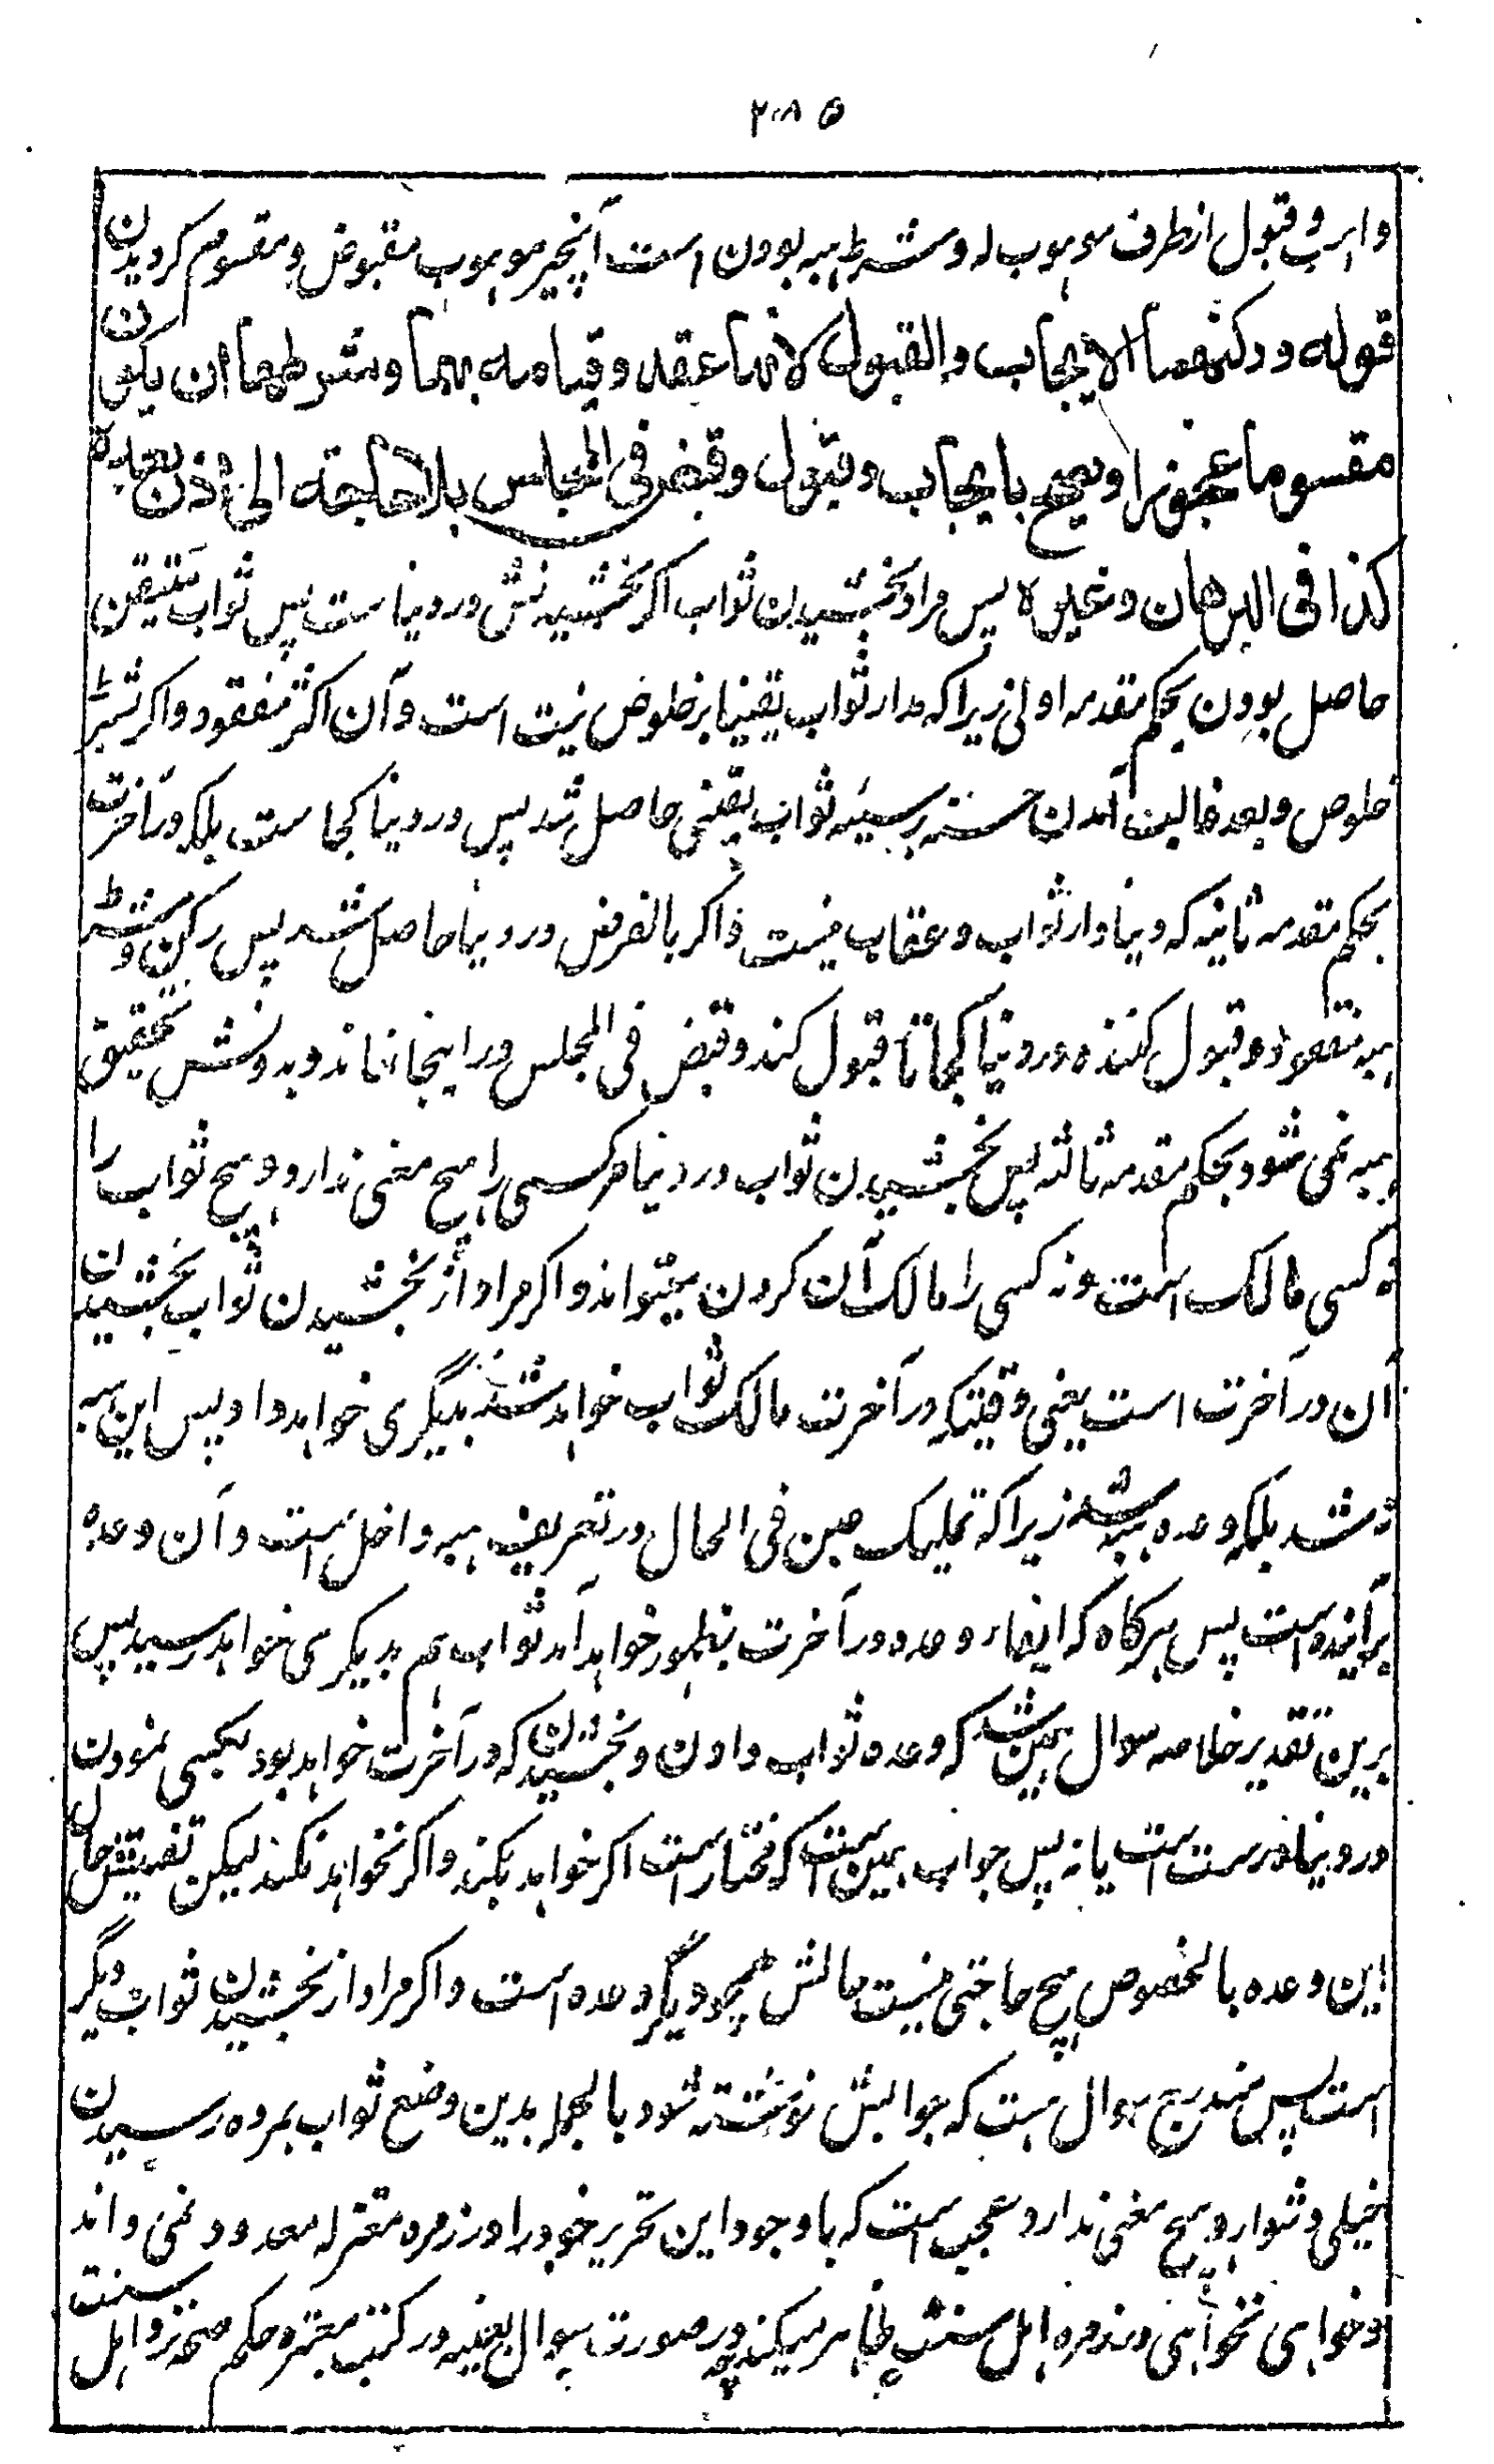 ۲۸۵
واہب و قبول از طرف موہوب لہ و شرط ہبہ بودن است آنچیز موہوب مقبوض و مقسوم گردیدن
قوله و رکنهما الایجاب والقبول لانها عقد و قیامه بهما و شرطهما ان یکون
مقسوما محوزا و یصح بایجاب و قبول و قبض فی المجلس بلا حاجته الی اذن بعده
کذا فی البرهان وغیره پس مراد بخشیدن ثواب اگر بخشیدنش در دنیاست پس ثواب متیقن
حاصل بودن بحکم مقدمہ اولی زیرا کہ مدار ثواب یقینا بر خلوص نیت است و آن اکثر مفقود و اگر بشرط
خلوص و بعد غالب آمدن حسنہ بر سیئہ ثواب یقینی حاصل شد پس در دنیا کجاست بلکہ در آخرت
بحکم مقدمہ ثانیہ کہ دنیا دار ثواب و عقاب نیست و اگر بالفرض در دنیا حاصل شد پس رکن و شرط
ہبہ مفقود و قبول کنندہ در دنیا کجا تا قبول کند و قبض فی المجلس در اینجا نماند و بدونش تحقیق
ہبہ نمی شود بحکم مقدمہ ثالثہ پس بخشیدن ثواب در دنیا مر کسی را ہیچ معنی ندارد و ہیچ ثواب را
نہ کسی مالک است و نہ کسی را مالک آن کردن میتواند و اگر مراد از بخشیدن ثواب بخشیدن
آن در آخرت است یعنی وقتیکہ در آخرت مالک ثواب خواہد شد بدیگری خواہد داد پس این ہبہ
نہ شد بلکہ وعدہ ہبہ شد زیرا کہ تملیک عین فی الحال در تعریف ہبہ داخل است و آن وعدہ
بر آیندہ است پس ہرگاہ کہ ایفاء وعدہ در آخرت بظہور خواہد آمد ثواب ہم بدیگری خواہد رسید پس
برین تقدیر خلاصہ سوال ہمین شد کہ وعدہ ثواب دادن و بخشیدن کہ در آخرت خواہد بود بکسی نمودن
در دنیا درست است یا نہ پس جواب ہمین است کہ مختار است اگر خواہد بکند و اگر نخواہد نکند لیکن تفتیش حال
این وعدہ بالخصوص ہیچ حاجتی نیست حالش ہمچو دیگر وعدہ است و اگر مراد از بخشیدن ثواب دیگر
است پس مندرج سوال است کہ جوابش نوشتہ شود بالجملہ بدین وضع ثواب بمردہ رسیدن
خیلی دشوار و ہیچ معنی ندارد عجب است کہ باوجود این تحریر خود را در زمرہ معتزلہ معدود نمی داند
و خواہی نخواہی در زمرہ اہل سنت ظاہر میکند و در صورت سوال بعینہ در کتب معتبرہ حکم صحت نزد اہل سنت